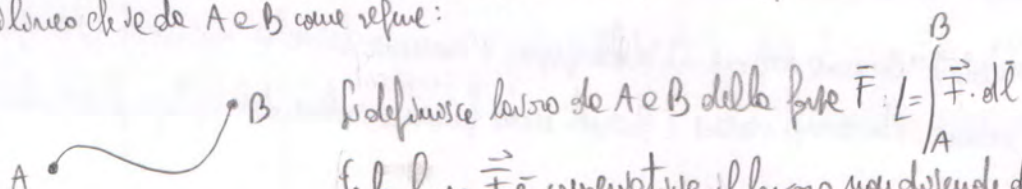 linea che va da A a B come segue:
B
Si definisce lavoro da A a B della forza F̄: L = ∫_A^B F⃗ · dl̄
A
Se la forza F⃗ è conservativa il lavoro non dipende d